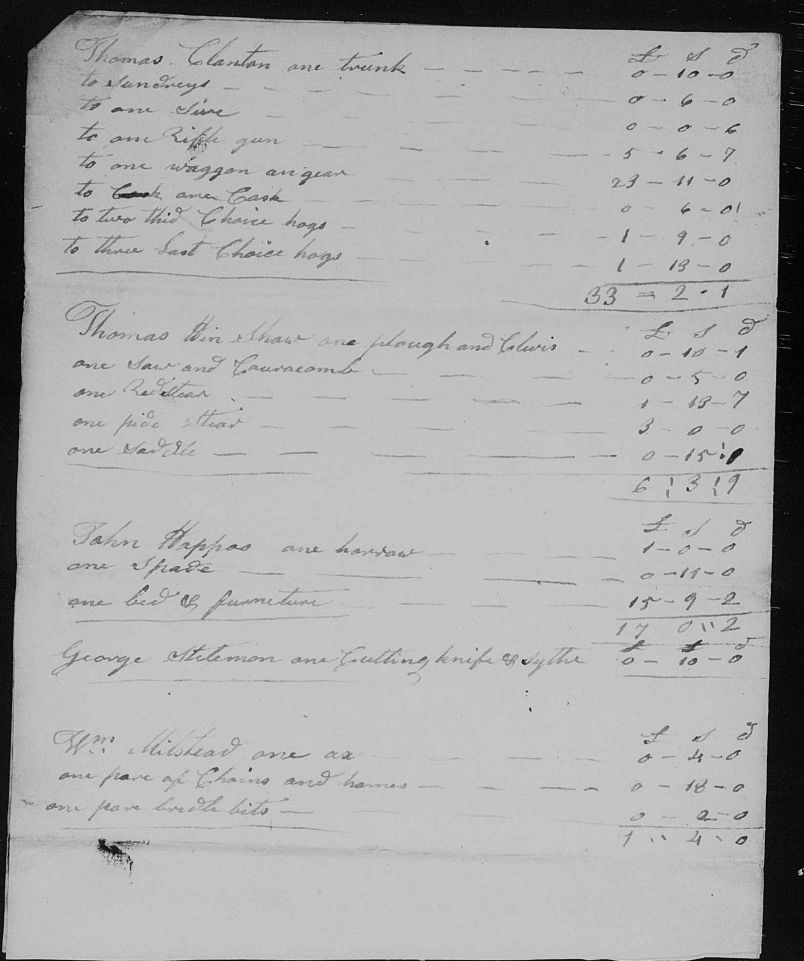 £ S d
Thomas. Clanton one trunk 0 - 10 - 0
to Sundreys 0 - 6 - 0
to one Sive 0 - 0 - 6
to one Rifle gun 5 - 6 - 7
to one waggon an gear 23 - 11 - 0
to one Cask 0 - 6 - 0
to two thid Choice hogs 1 - 9 - 0
to three Last Choice hogs 1 - 13 - 0
33 = 2 - 1
£ S d
Thomas Hin Shaw one plough and Clivis 0 - 10 - 1
one Saw and Couracomb 0 - 5 - 0
one Red Stear 1 - 13 - 7
one pide Stear 3 - 0 - 0
one Saddle 0 - 15 : 1
6 : 3 : 9
£ S d
John Happos one harrow 1 - 0 - 0
one Spade 0 - 11 - 0
one bed & furneture 15 - 9 - 2
17 0 " 2
£ £ d
George Stileman one Cutting knife & Sythe 0 - 10 - 0
£ S d
Wm: Milstead one ax 0 - 4 - 0
one pare of Chains and hames 0 - 18 - 0
one pare bridle bits 0 - 2 - 0
1 " 4 " 0